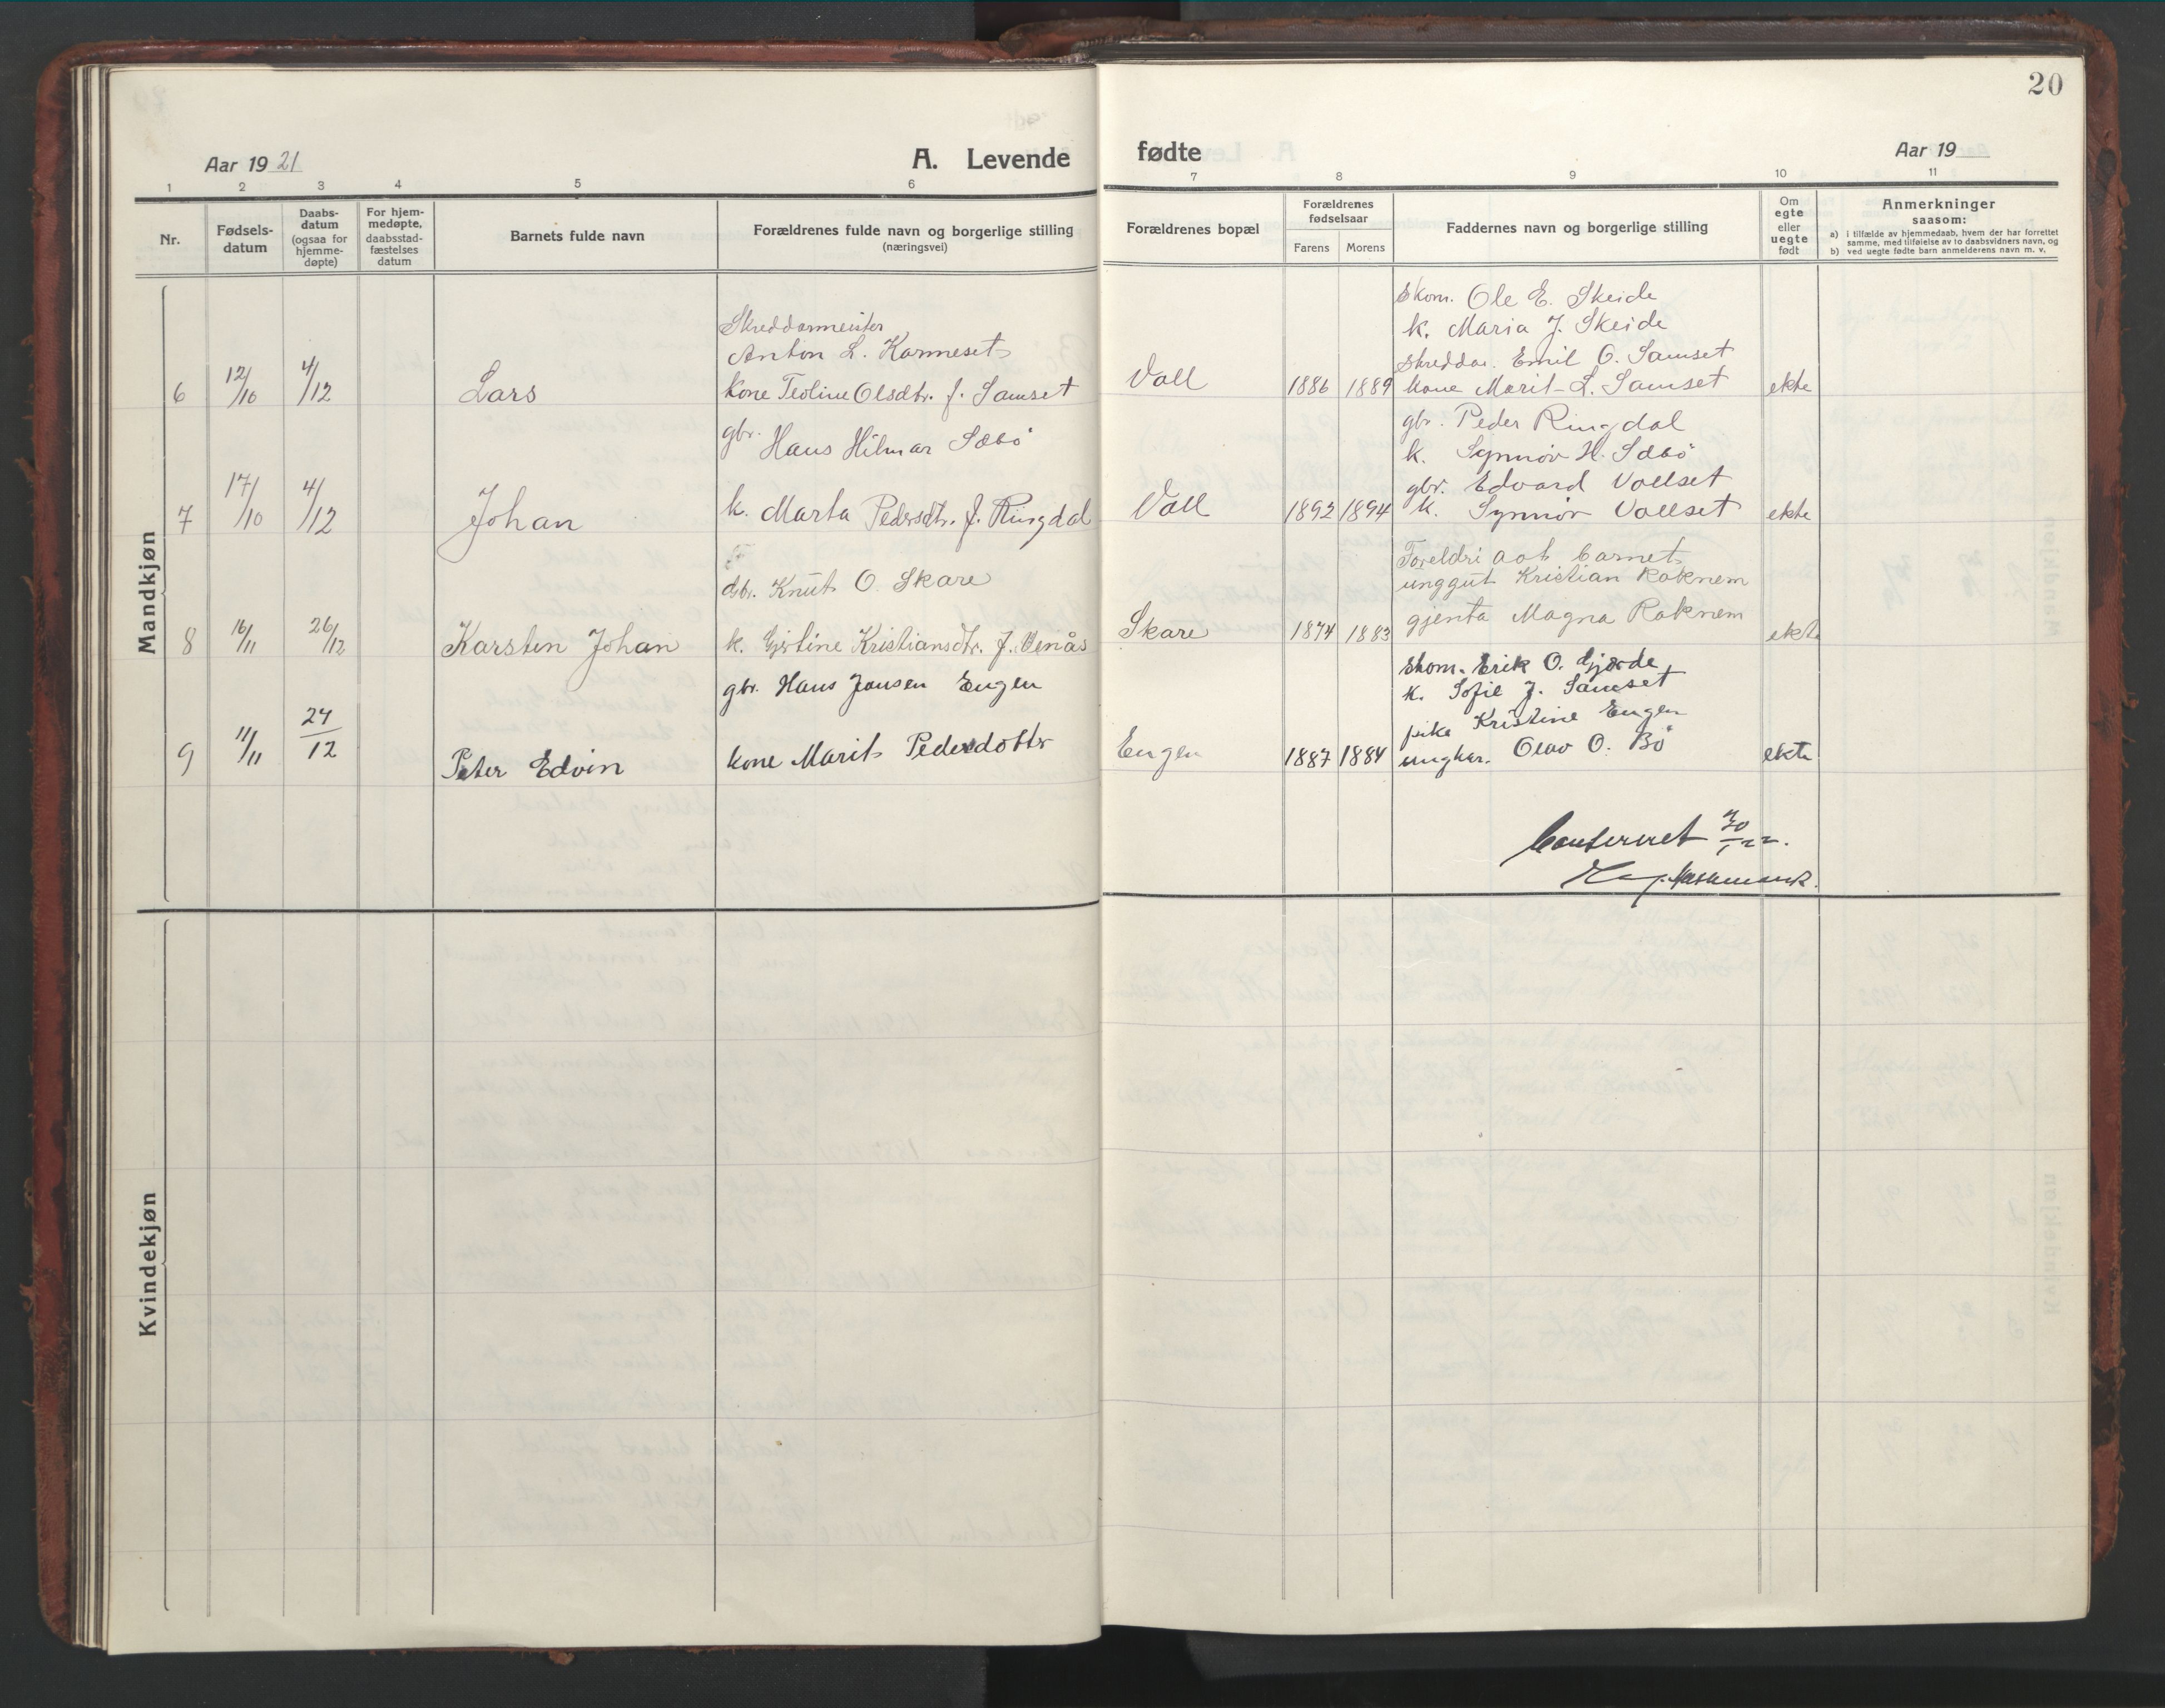 20
Aar 1921
A. Levende fødte
Aar 19
1 2 3 4 5 6 7 8 9 10 11
Nr.
Fødsels-
datum
Daabs-
datum
(ogsaa for
hjemme-
døpte)
For hjem-
medøpte,
daabsstad-
fæstelses
datum
Barnets fulde navn
Forældrenes fulde navn og borgerlige stilling
(næringsvei)
Forældrenes bopæl
Forældrenes
fødselsaar
Farens Morens
Faddernes navn og borgerlige stilling
Om
egte
eller
uegte
født
Anmerkninger
saasom:
a) i tilfælde av hjemmedaab, hvem der har forrettet
samme, med tilføielse av to daabsvidners navn, og
b) ved uegte fødte barn anmelderens navn m. v.
Mandkjøn
6 12/10 4/12 Lars
Skreddarmeister
Anton L. Karmeset
kone Teoline Olsdtr. f. Samset
Voll 1886 1889
Skom. Ole E. Skeide
k. Maria J. Skeide
skreddar. Emil O. Samset
kone Marit L. Samset
ekte
7 17/10 4/12 Johan
gbr. Hans Hilmar Sæbö
k. Marta Pedersdtr. f. Ringdal
Voll 1892 1894
gbr. Peder Ringdal
k. Synnöv H. Sæbö
gbr. Edvard Vollset
k. Synnöv Vollset
ekte
8 16/11 26/12 Karsten Johan
gbr. Knut O. Skare
k. Gjertine Kristiansdtr. f. Venås
Skare 1874 1883
Foreldri aat barnet
unggut Kristian Raknem
gjenta Magna Raknem
ekte
9 11/11 24/12 Peter Edvin
gbr. Hans Jonsen Engen
kone Marit Pedersdotter
Engen 1887 1884
skom. Erik O. Gjærde
k. Sofie J. Samset
pike Kristine Engen
ungkar. Olav O. Bö
ekte
Confereret
Kvindekjøn